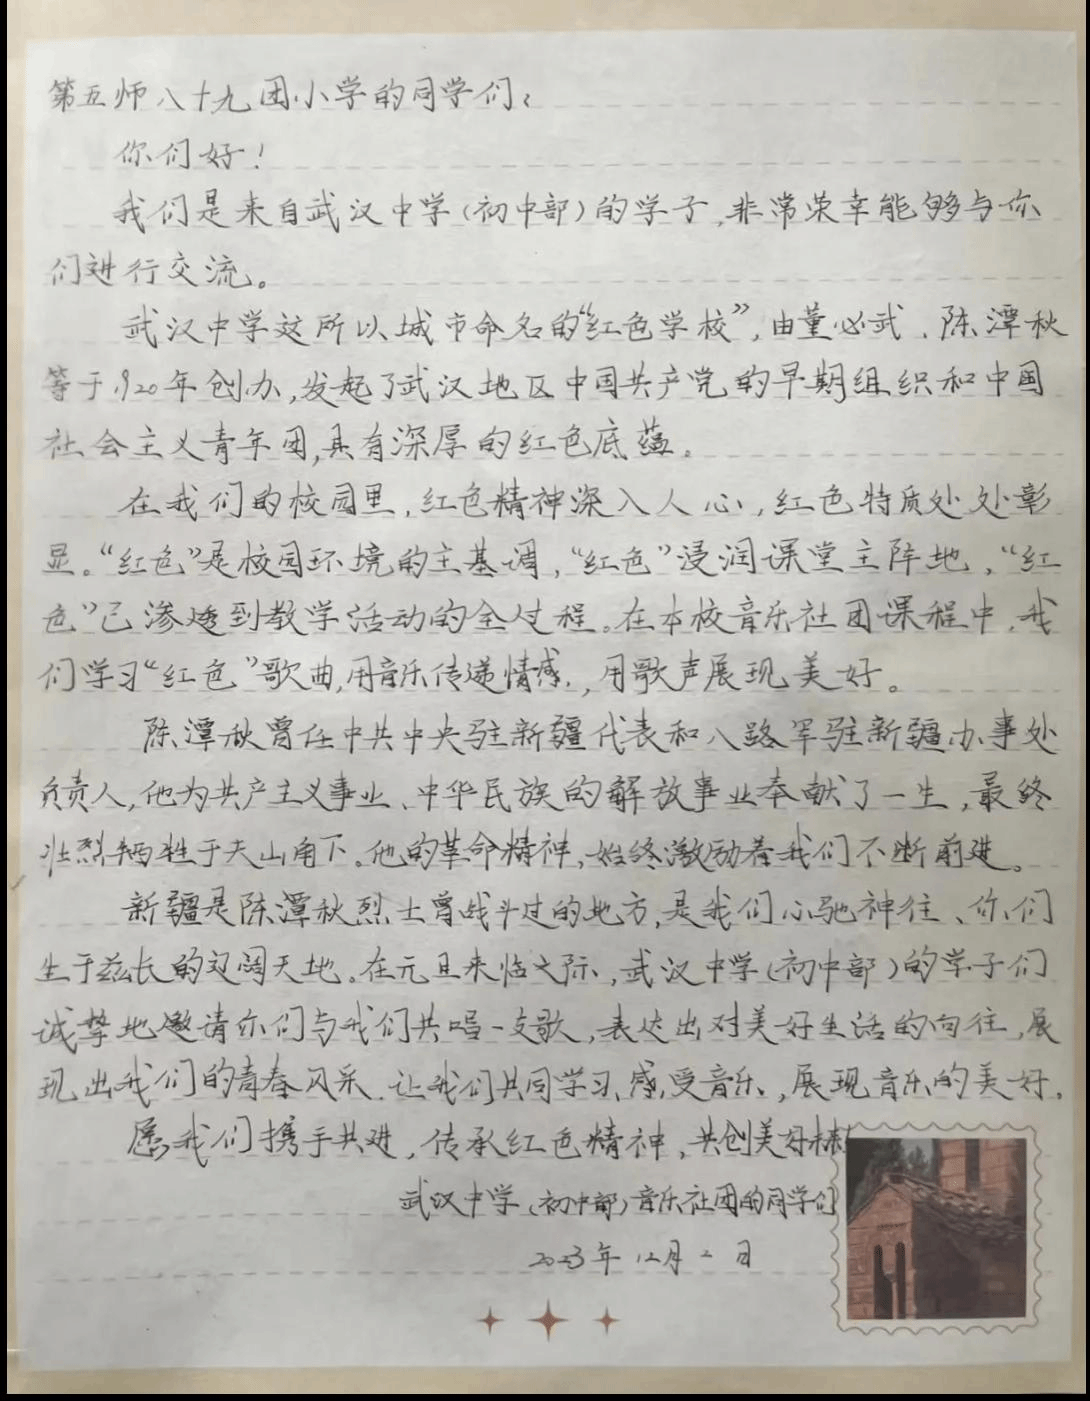 第五师八十九团小学的同学们：
你们好！
我们是来自武汉中学(初中部)的学子,非常荣幸能够与你
们进行交流。
武汉中学这所以城市命名的“红色学校”,由董必武、陈潭秋
等于1920年创办,发起了武汉地区中国共产党的早期组织和中国
社会主义青年团,具有深厚的红色底蕴。
在我们的校园里,红色精神深入人心,红色特质处处彰
显。“红色”是校园环境的主基调,“红色”浸润课堂主阵地,“红
色”已渗透到教学活动的全过程。在本校音乐社团课程中,我
们学习“红色”歌曲,用音乐传递情感,用歌声展现美好。
陈潭秋曾任中共中央驻新疆代表和八路军驻新疆办事处
负责人,他为共产主义事业、中华民族的解放事业奉献了一生,最终
壮烈牺牲于天山角下。他的革命精神,始终激励着我们不断前进。
新疆是陈潭秋烈士曾战斗过的地方,是我们心驰神往、你们
生于兹长的辽阔天地。在元旦来临之际,武汉中学(初中部)的学子们
诚挚地邀请你们与我们共唱一支歌,表达出对美好生活的向往,展
现出我们的青春风采.让我们共同学习、感受音乐,展现音乐的美好.
愿我们携手共进,传承红色精神,共创美好
武汉中学(初中部)音乐社团的同学们
2023年12月2日